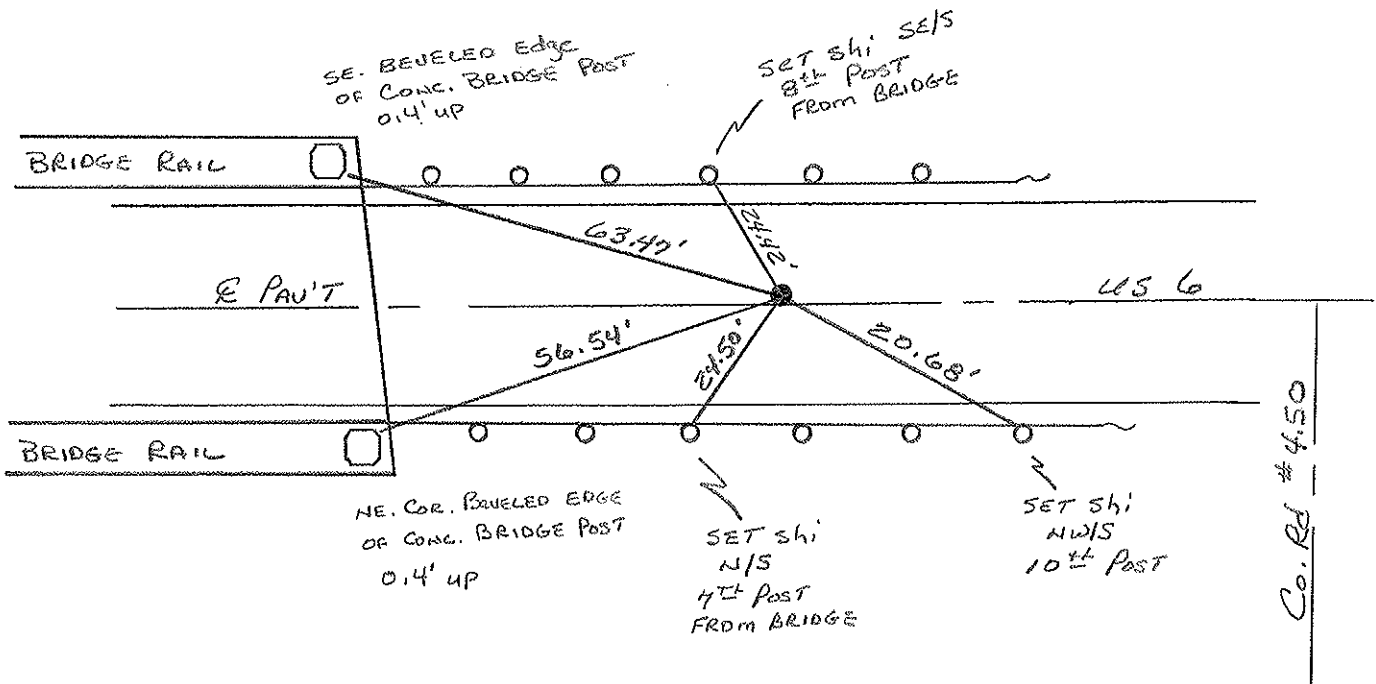 SE. BEVELED Edge
OF CONC. BRIDGE POST
0.4' UP
SET Shi SE/S
8th POST
FROM BRIDGE
BRIDGE RAIL
63.47'
24.42'
℄ PAV'T
US 6
56.54'
24.50'
20.68'
BRIDGE RAIL
NE. COR. BEVELED EDGE
OF CONC. BRIDGE POST
0.4' UP
SET Shi
N/S
7th POST
FROM BRIDGE
SET Shi
NW/S
10th POST
Co. Rd #4.50